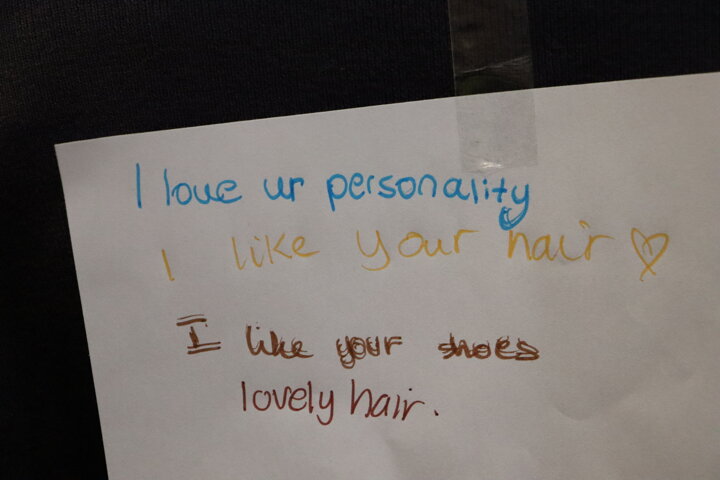 I love ur personality
I like your hair ♡
I like your shoes
lovely hair.